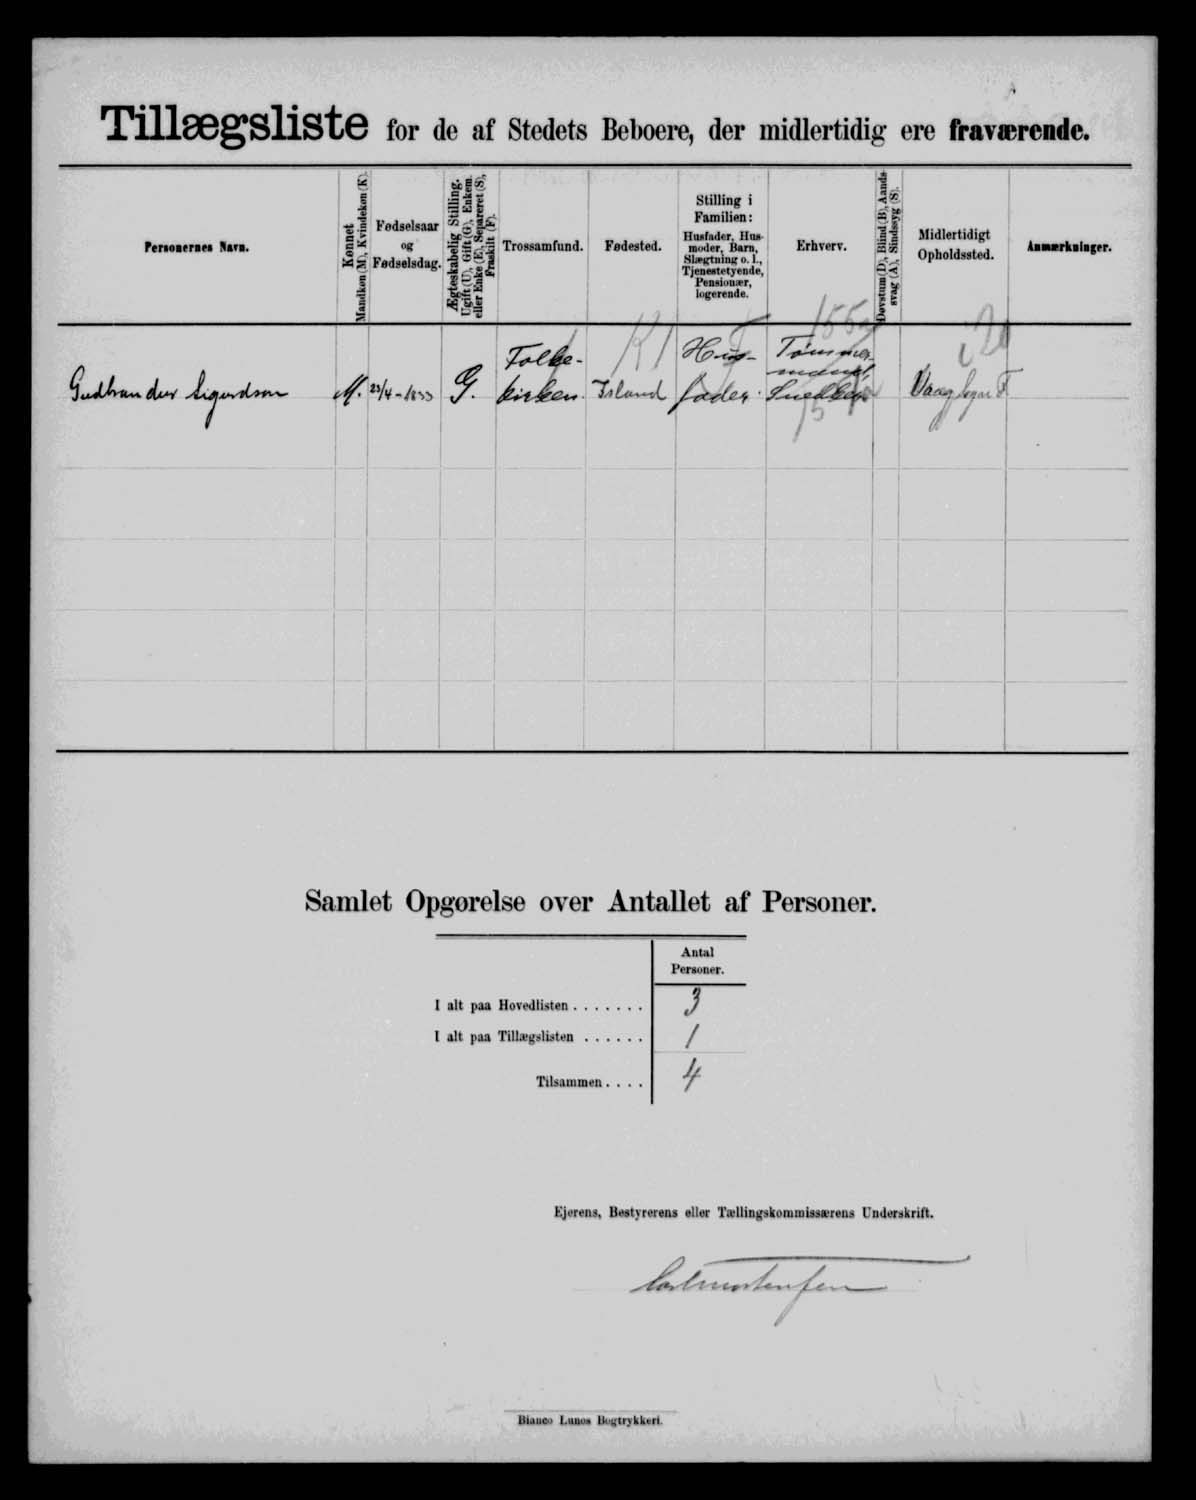 Tillægsliste for de af Stedets Beboere, der midlertidig ere fraværende.
Personernes Navn.
Kønnet
Mandkøn (M), Kvindekøn (K).
Fødselsaar
og
Fødselsdag.
Ægteskabelig Stilling.
Ugift (U), Gift (G), Enkem.
eller Enke (E), Separeret (S),
Fraskilt (F).
Trossamfund.
Fødested.
Stilling i
Familien:
Husfader, Hus-
moder, Barn,
Slægtning o. l.,
Tjenestetyende,
Pensionær,
logerende.
Erhverv.
Døvstum (D), Blind (B), Aands-
svag (A), Sindssyg (S).
Midlertidigt
Opholdssted.
Anmærkninger.
Gudbrandur Sigurdson
M.
23/4-1833
G.
Folke-
kirken.
Island
Hus-
fader.
Tømmer-
mand
Snedker
Vaag Sogn F
Samlet Opgørelse over Antallet af Personer.
Antal
Personer.
I alt paa Hovedlisten . . . . . . . 3
I alt paa Tillægslisten . . . . . . 1
Tilsammen . . . . 4
Ejerens, Bestyrerens eller Tællingskommissærens Underskrift.
Bianco Lunos Bogtrykkeri.